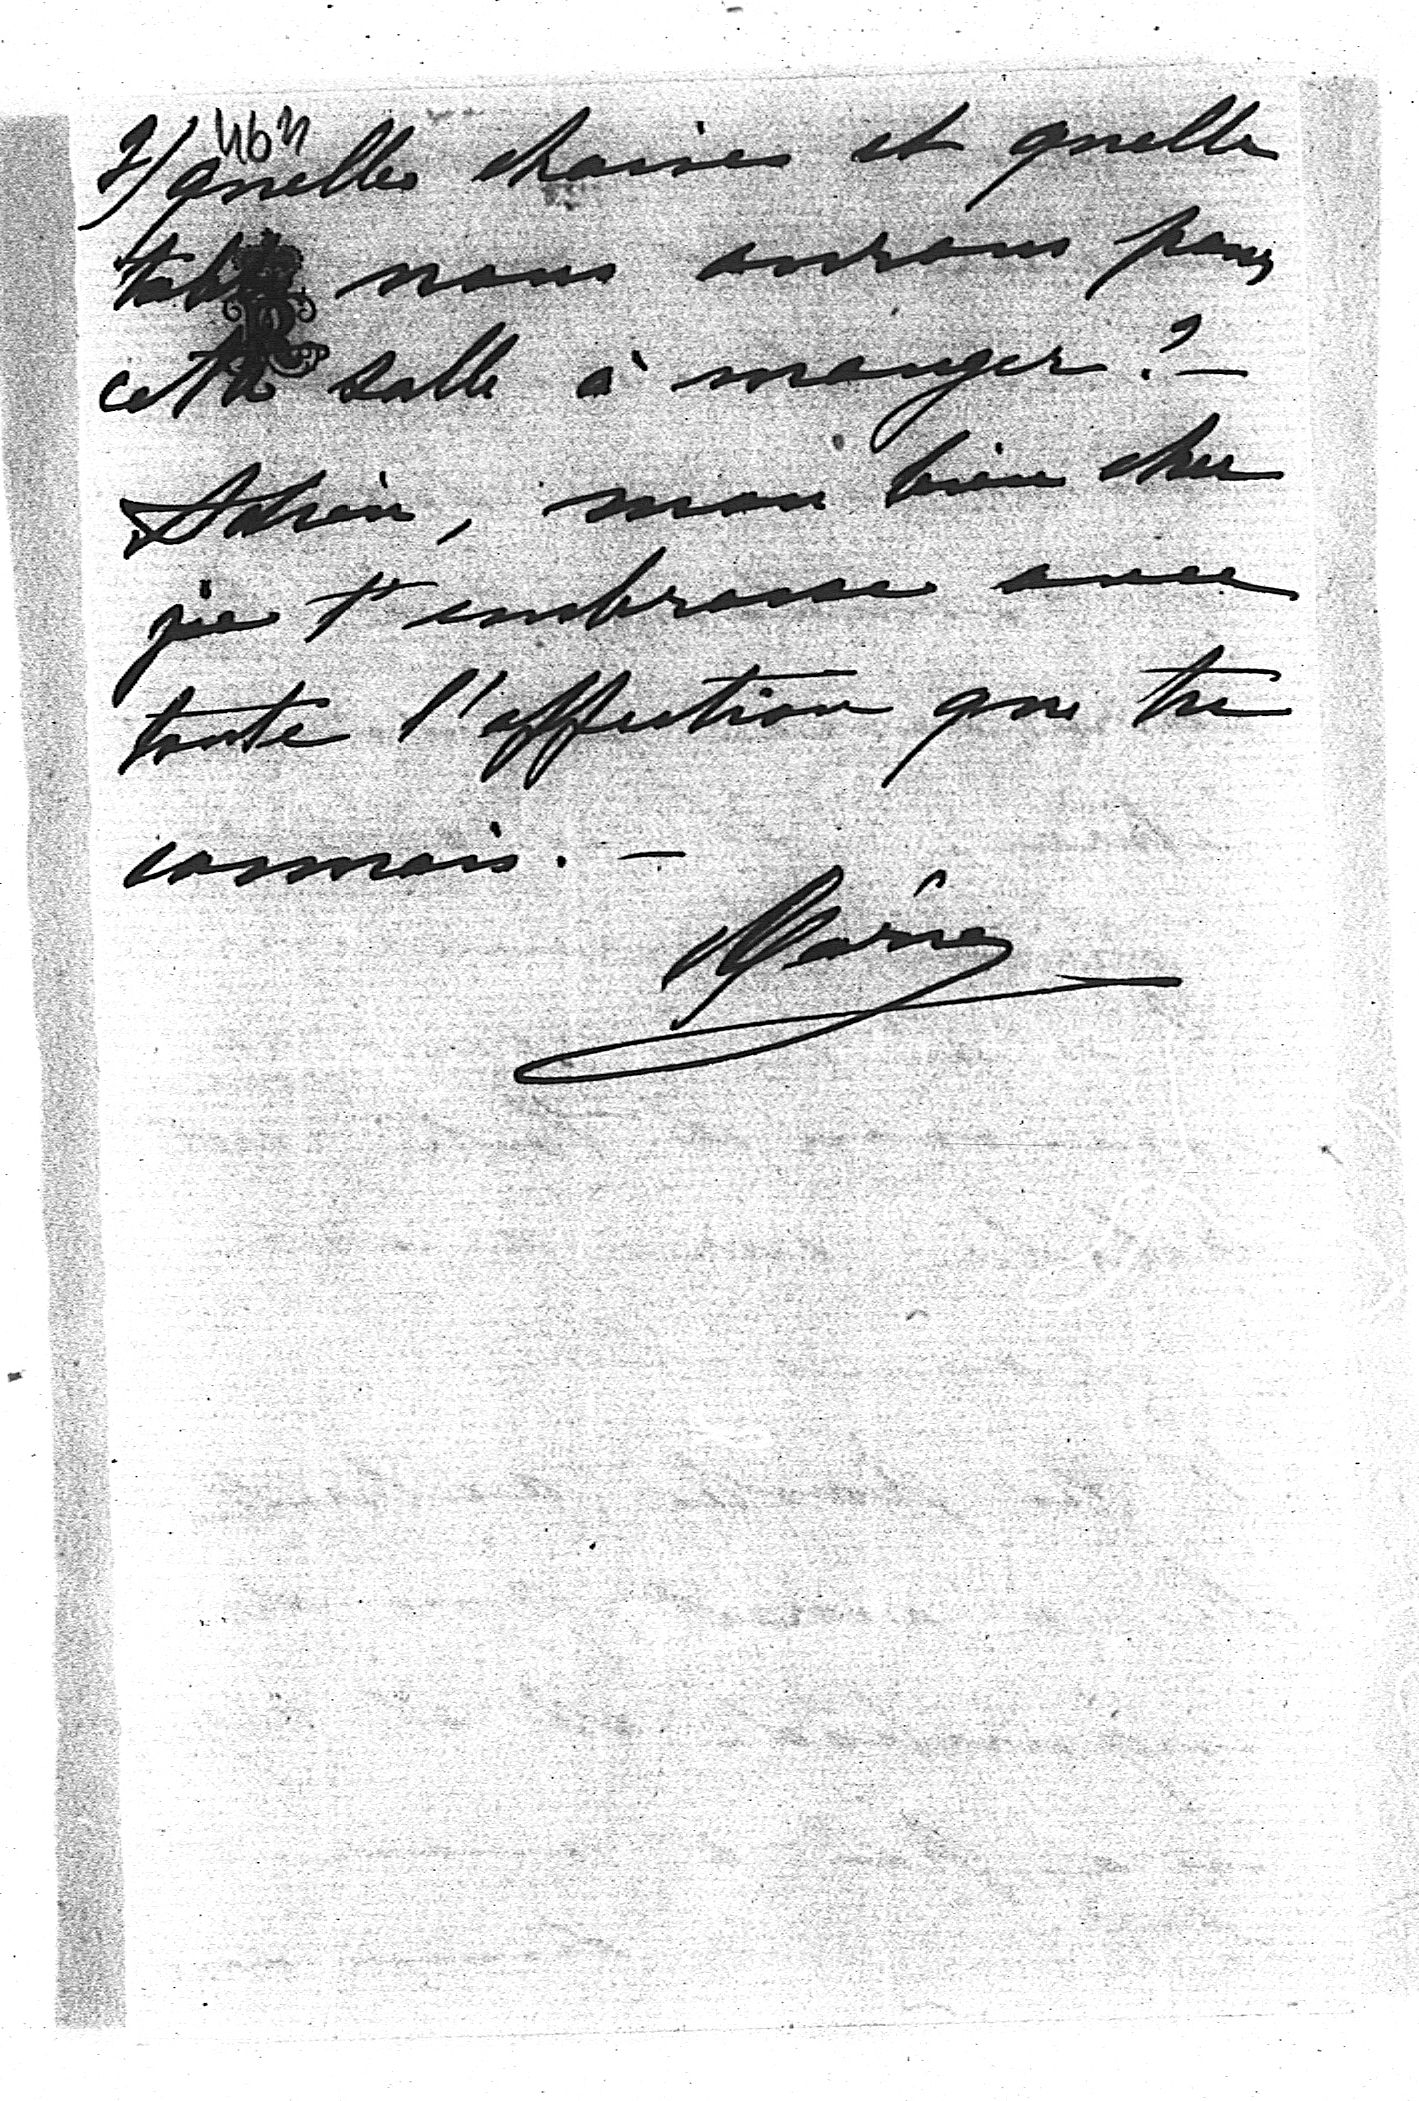 2/ quelles chaises et quelle
table nous aurons pour
cette salle à manger? -
Adieu, mon bien cher
je t'embrasse avec
toute l'affection que tu
connais. -
Marie